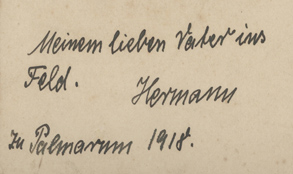 Meinem lieben Vater ins
Feld.
Hermann
Zu Palmarum 1918.